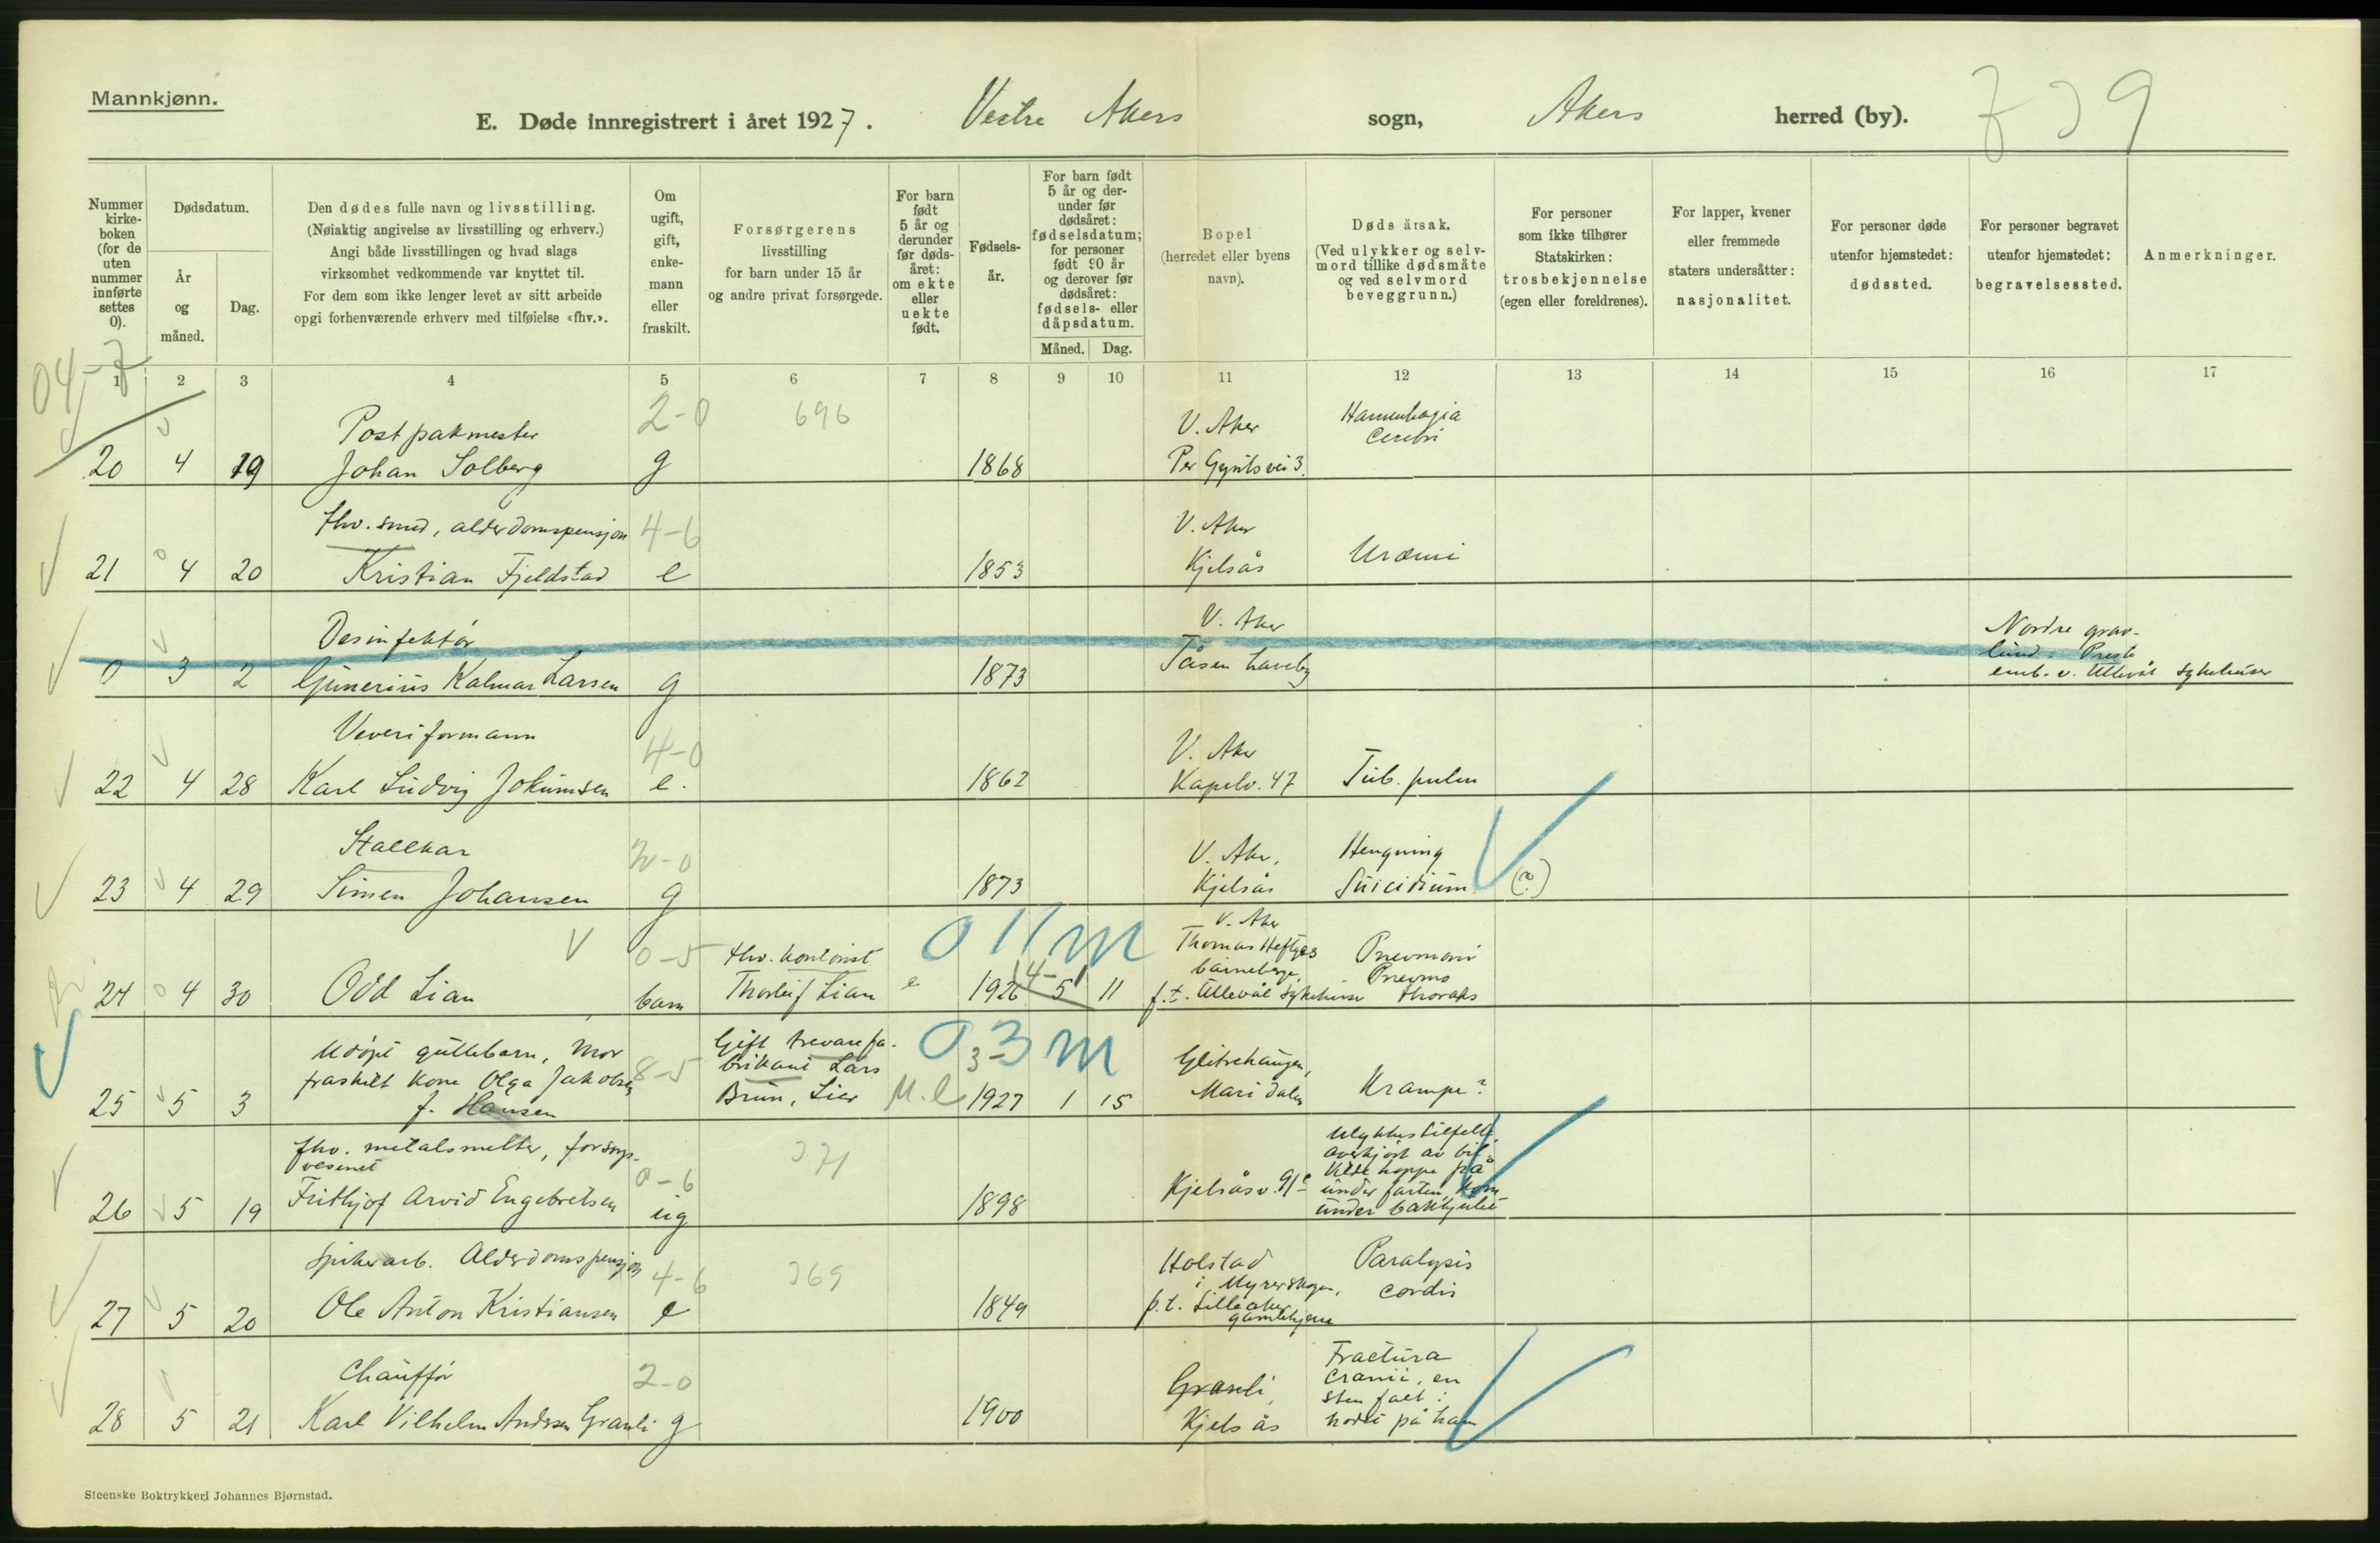 Mannkjønn.
E. Døde innregistrert i året 1927. Vestre Akers sogn, Akers herred (by).
Nummer kirkeboken (for de uten nummer innførte settes 0).
Dødsdatum.
År og måned.
Dag.
Den dødes fulle navn og livsstilling.
(Nøiaktig angivelse av livsstilling og erhverv.)
Angi både livsstillingen og hvad slags
virksomhet vedkommende var knyttet til.
For dem som ikke lenger levet av sitt arbeide
opgi forhenværende erhverv med tilføielse «fhv.».
Om ugift, gift, enkemann eller fraskilt.
Forsørgerens
livsstilling
for barn under 15 år
og andre privat forsørgede.
For barn født 5 år og derunder før dødsåret: om ekte eller uekte født.
Fødselsår.
For barn født 5 år og derunder før dødsåret: fødselsdatum; for personer født 90 år og derover før dødsåret: fødsels- eller dåpsdatum.
Måned. Dag.
Bopel
(herredet eller byens
navn).
Døds årsak.
(Ved ulykker og selvmord tillike dødsmåte og ved selvmord beveggrunn.)
For personer
som ikke tilhører
Statskirken:
trosbekjennelse
(egen eller foreldrenes).
For lapper, kvener
eller fremmede
staters undersåtter:
nasjonalitet.
For personer døde
utenfor hjemstedet:
dødssted.
For personer begravet
utenfor hjemstedet:
begravelsessted.
Anmerkninger.
1 2 3 4 5 6 7 8 9 10 11 12 13 14 15 16 17
04-7
Postpakmester 2-0 696 V. Aker
Cerebri
20 4 19 Johan Solberg g 1868 Per Gyntsvei 3.
fhv. smed, alderdomspensjon 4-6 V. Aker
21 4 20 Kristian Fjeldstad e 1853 Kjelsås Uræmi
Desinfektør V. Aker Nordre gravlund. Preste
0 3 2 Gunerius Kalmar Larsen g 1873 Tåsen haveby emb. v. Ullevål sykehuser
Veveriformann 4-0 V. Aker
22 4 28 Karl Ludvig Jokumsen e. 1862 Kapelv. 47 Tub. pulm
Stallkar 2-0 V. Aker, Hengning
23 4 29 Simen Johansen g 1873 Kjelsås Suicidium (?)
0 11 m V. Aker
0-5 fhv. kontorist Thomas Heftyes Pnevmoni
barnehage, Pnevmo
24 4 30 Odd Lian barn Thorleif Lian e 1926 5 11 p.t. Ullevål sykehuse thoraks
0 3 m
Udøpt guttebarn, mor Gift trevarefa-
fraskilt kone Olga Jakobsen 8-5 brikant Lars Glitrehaugen,
25 5 3 f. Hansen Brun, Lier U.e 1927 1 15 Maridalen Krampe?
fhv. metalsmelter, forsorgsvesenet 0-6 371 Ulykkestilfelle.
Overkjørt av bil.
Vilde hoppe på
under farten, kom
26 5 19 Frithjof Arvid Engebretsen ug 1898 Kjelsåsv. 91 under bakhjulet
Spikerarb. Alderdomspensjon 4-6 369 Holstad Paralysis
i Myrerskogen, cordis
27 5 20 Ole Anton Kristiansen e 1849 p.t. Lilleaker gamlehjem
Chauffør 2-0 Granli, Fractura
Cranii, en
sten falt i
28 5 21 Karl Vilhelm Andersen Granli g 1900 Kjelsås hodet på ham
Steenske Boktrykkeri Johannes Bjørnstad.